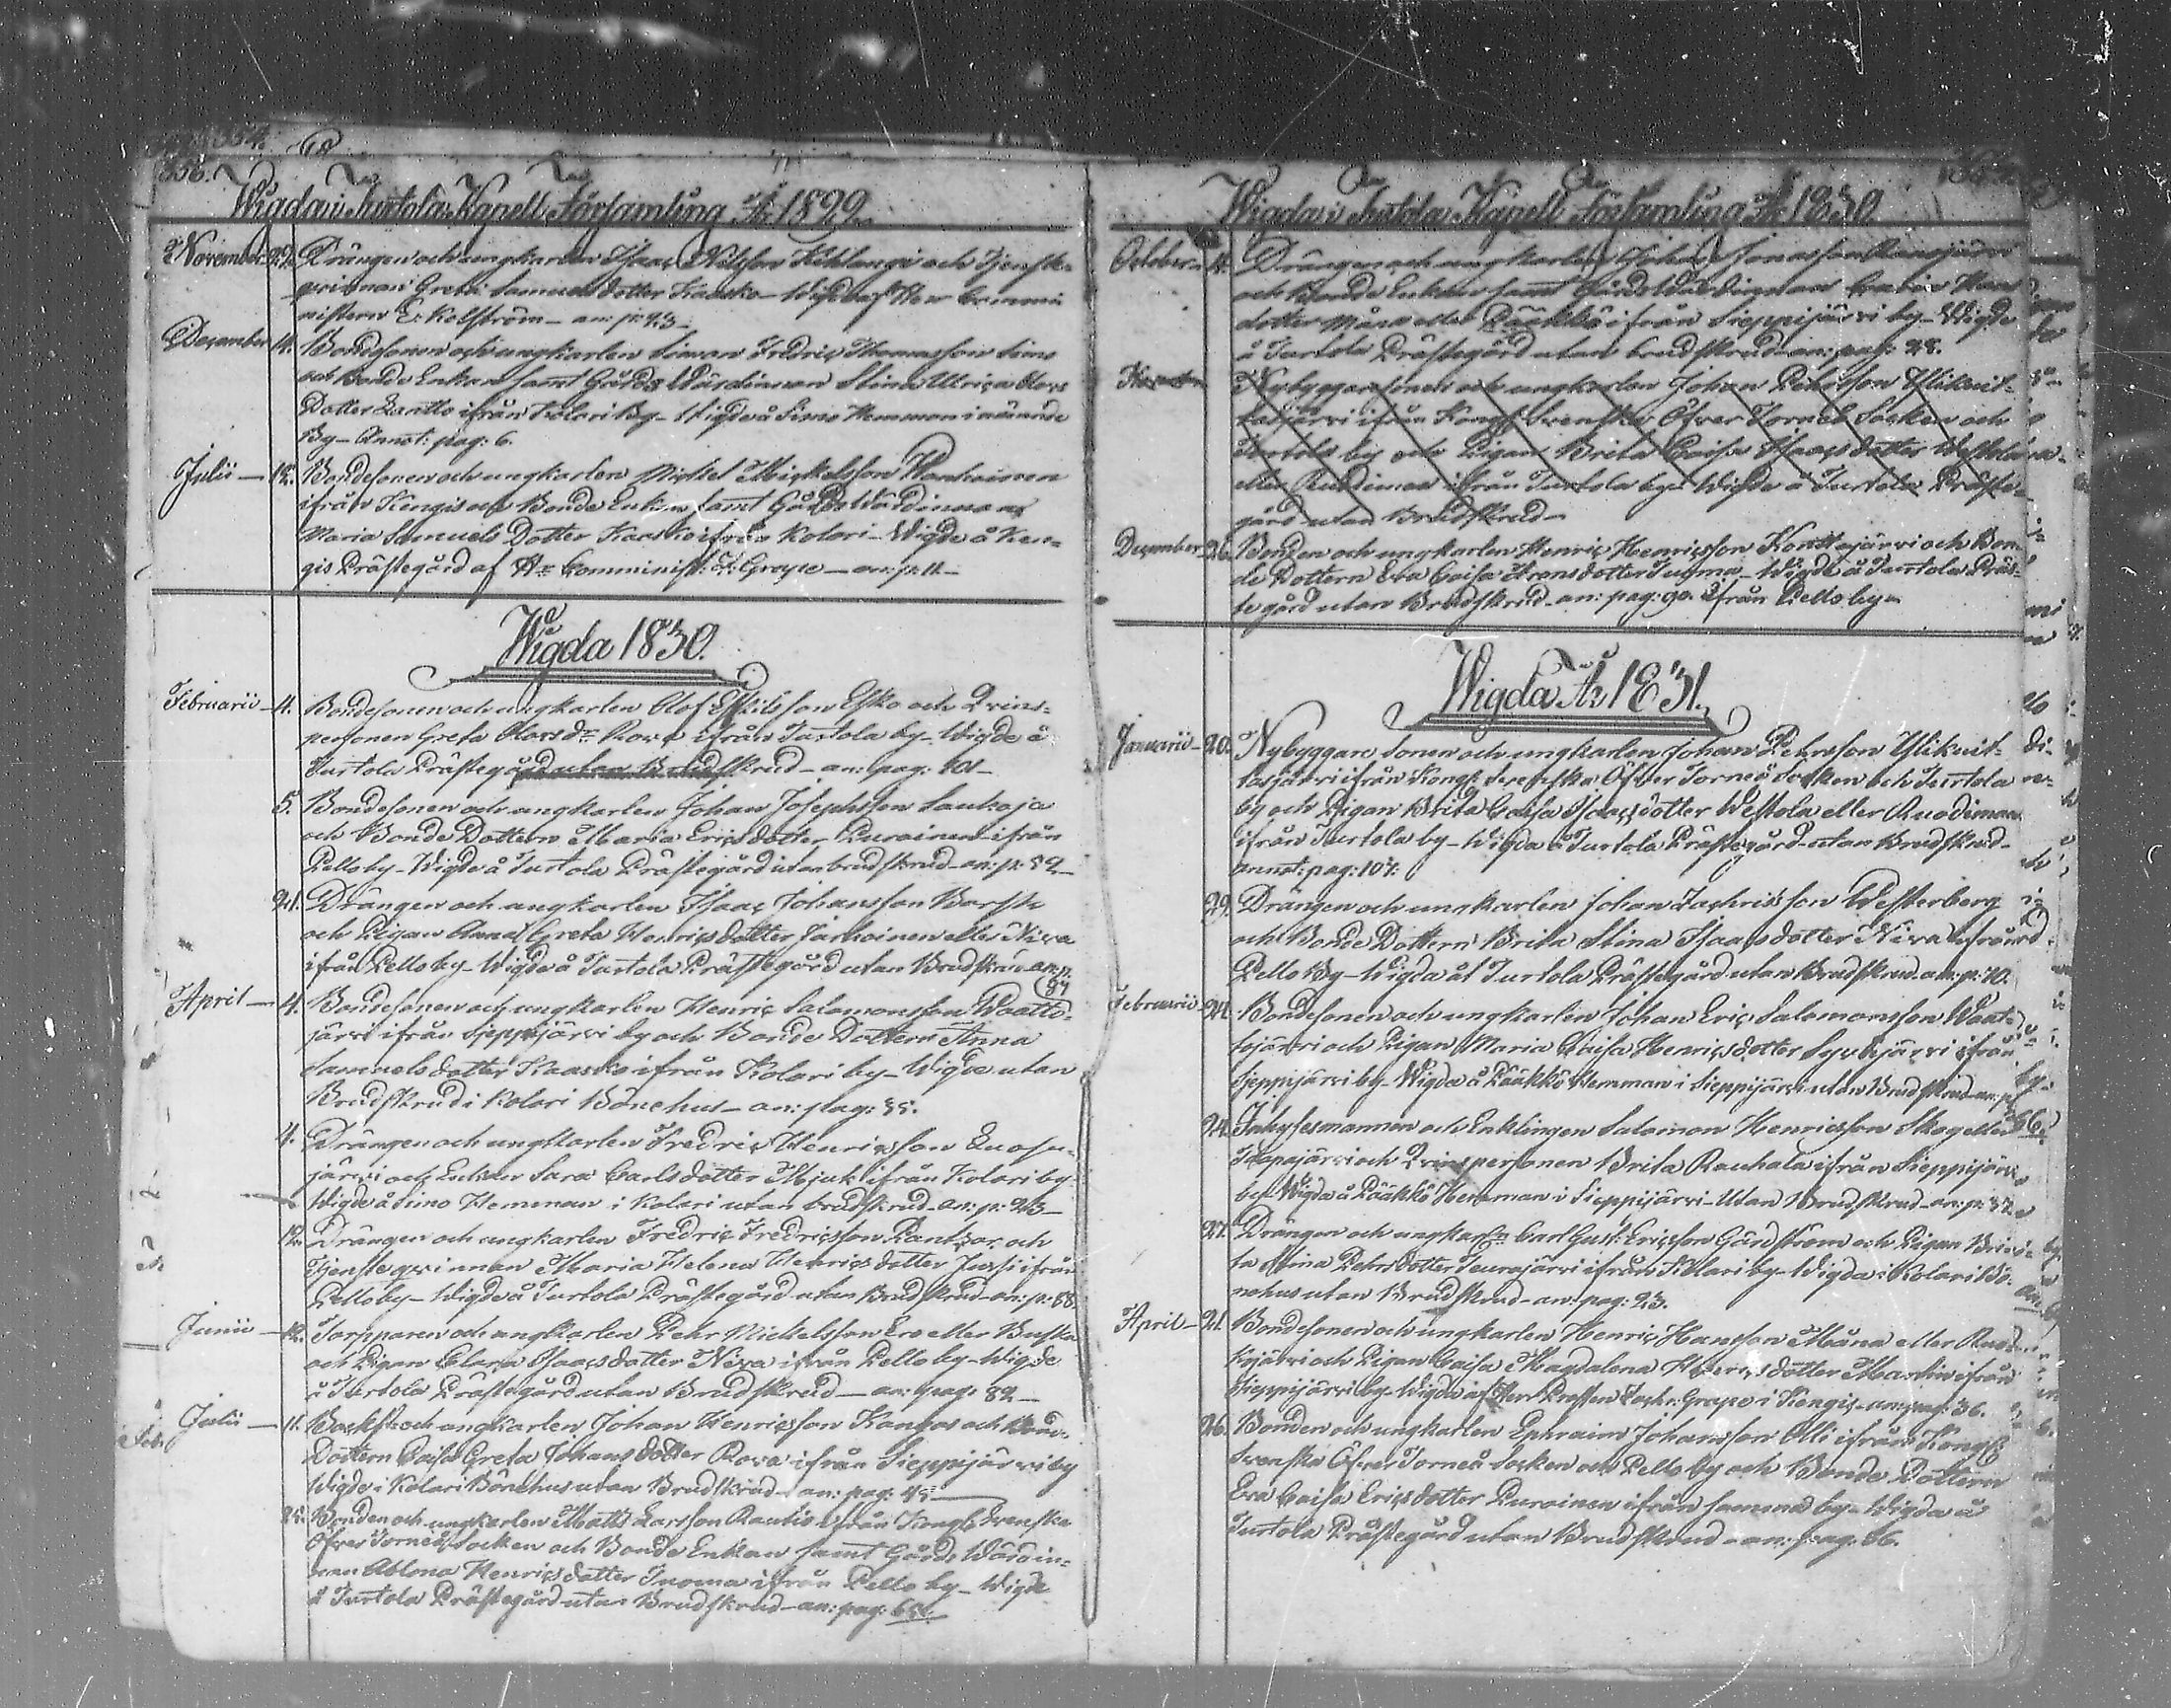 356.
Wigda i Turtola Kapell Församling År 1829.
November 27. Drängen och ungkarlen Isaac Nilsson Kihlangi och Tjenste-
qvinnan Greta Samuels dotter Kaasko
nistern E. Kolström – an: p: 23 –
December 14. Bondesonen och ungkarlen Simon Fredric Thomasson Simo
och Bonde Enkan samt Gårds Värdinnan Stina Ulrica Olofs
Dotter Lantto ifrån Kolari By – Wigde å Simo Hemman i nämnde
By – Annot: pag: 6.
Julii – 12. Bondesonen och ungkarlen Michel Mickelsson Wanhainen
ifrån Kengis och Bonde Enkan samt Gårds Wärdinnan
Maria Samuels Dotter Kaasko ifrån Kolari – Wigde å Ken-
gis Prästegård af Hr Comminist: I: Grape – an: p: 11 –
Wigda 1830.
Februarii – 4. Bondesonen och ungkarlen Olof Eskilsson Esko och Qvins-
personen Greta Olofs dr Rova ifrån Turtola by – Wigde å
Turtola Prästegård utan Brudskrud – an: pag: 101 –
5. Bondesonen och ungkarlen Johan Josephsson Laukoja
och Bonde Dottern Maria Erics dotter Purainen ifrån
Pello by – Wigde å Turtola Prästegård utan brudskrud – an: p: 82 –
21. Drängen och ungkarlen Isaac Johansson Barsk
och Pigan Anna Greta Henrics dotter Jarhoinen eller Niva
ifrån Pello by – Wigde å Turtola Prästegård utan Brudskrud – an: p:
84
April – 4. Bondesonen och ungkarlen Henric Salomonsson Waatto-
järvi ifrån Sieppijärvi by och Bonde Dottern Anna
Samuels dotter Kaasko ifrån Kolari by – Wigde utan
Brudskrud i Kolari Bönehus – an: pag: 35.
4. Drängen och ungkarlen Fredric Henricsson Luosu-
järvi och Enkan Sara Carls dotter Mjuk ifrån Kolari by –
Wigde å Simo Hemman i Kolari utan brudskrud – an: p: 23 –
12. Drängen och ungkarlen Fredric Fredricsson Pantzar och
Tjensteqvinnan Maria Helena Henrics dotter Jussi ifrån
Pello by – Wigde å Turtola Prästegård utan Brudskrud – an: p: 88
Junii – 12. Torpparen och ungkarlen Pehr Mickelsson Ero eller Buska
och Pigan Clara Isaacs dotter Niva ifrån Pello by – Wigde
å Turtola Prästegård utan Brudskrud – an: pag: 82 –
Julii – 11. och ungkarlen Johan Henricsson Kangas och Bonde
Dottern Caisa Greta Johans dotter Rova ifrån Sieppijärvi by
Wigde i Kolari Bönehus utan Brudskrud – an: pag: 45 –
25. Bonden och ungkarlen Matts Larsson Rautio ifrån Kongl: Svenska
Öfver Torneå Socken och Bonde Enkan samt Gårds Wärdin-
nan Ablona Henrics dotter Tuoma ifrån Pello by – Wigde
å Turtola Prästegård utan Brudskrud – an: pag: 65.
Wigda i Turtola Kapell Församling År 1830
October – 4. Drängen och ungkarlen Johan Jonasson Kansjärvi
och Bonde Enkan samt Gårds Wärdinnan Carin Hans
dotter Måna eller Pääkkö ifrån Sieppijärvi by – Wigde
å Turtola Prästegård utan brudskrud – an: pag: 28.
Nybyggaresonen och ungkarlen Johan Pehrsson Ylikuit-
tasjärvi ifrån Kongl: Svenska Öfver Torneå Socken och
Turtola by och Pigan Brita Caisa Isaacs dotter Westola
eller Ruodiman ifrån Turtola by – Wigde å Turtola Präste-
gård utan Brudskrud –
December 26. Bonden och ungkarlen Henric Henricsson Konttajärvi och Bon-
de Dottern Eva Caisa Arons dotter Tuoma – Wigde å Turtola Präs-
tegård utan Brudskrud – an: pag: 90. ifrån Pello by –
Wigda År 1831.
Januarii – 20. Nybyggare Sonen och ungkarlen Johan Pehrsson Ylikuit-
tasjärvi ifrån Kongl: Svenska Öfver Torneå Socken och Turtola
by och Pigan Brita Caisa Isaacs dotter Westola eller Ruodiman
ifrån Turtola by – Wigda å Turtola Prästegård utan Brudskrud –
annot: pag: 107.
29. Drängen och ungkarlen Johan Zachrisson Westerberg
och Bonde Dottern Brita Stina Isaacs dotter Niva ifrån
Pello By – Wigda åt Turtola Prästegård utan Brudskrud an: p: 70.
Februarii – 24. Bondesonen och ungkarlen Johan Eric Salomonsson Waat-
tojärvi och Pigan Maria Caisa Henrics dotter Syväjärvi ifrån
Sieppijärvi by – Wigda å Pääkkö Hemman i Sieppijärvi utan Brudskrud – an: p:
66.
24. Inhysesmannen och Enklingen Salomon Henricsson Skog eller
Taapajärvi och Qvinspersonen Brita Rauhala ifrån Sieppijärvi
by – Wigda å Pääkkö Hemman i Sieppijärvi – Utan Brudskrud – an: p: 37.
27. Drängen och ungkarln Carl Gust: Ericsson Gårdström och Pigan Bri-
ta Stina Pehrs dotter Teurajärvi ifrån Kolari by – Wigda i Kolari Bö-
nehus utan Brudskrud – an: pag: 23.
April – 21. Bondesonen och ungkarlen Henric Hansson Måna eller Ruok-
kojärvi och Pigan Caisa Magdalena Henrics dotter Martin ifrån
Sieppijärvi by – Wigda af Herr Prosten Zachr: Grape i Kengis – an: pag: 36.
26. Bonden och ungkarlen Ephraim Johansson Olli ifrån Kongl:
Svenska Öfver Torneå Socken och Pello by och Bonde Dottern
Eva Caisa Erics dotter Purainen ifrån samma by – Wigda å
Turtola Prästegård utan Brudskrud – an: pag: 86.